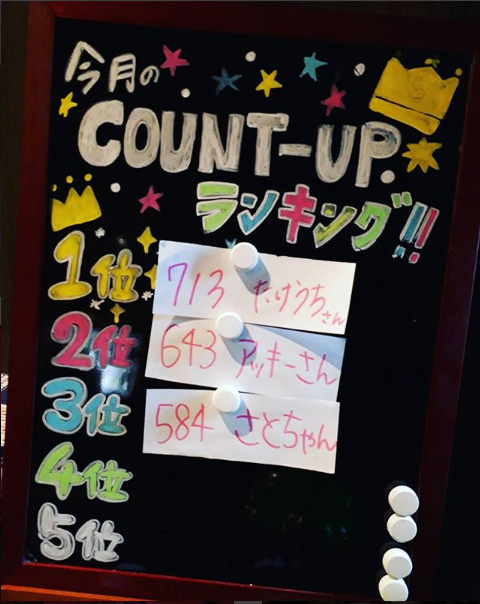 今月の
COUNT-UP
ランキング!!
1位 713 たけうちさん
2位 643 アッキーさん
3位 584 さとちゃん
4位
5位